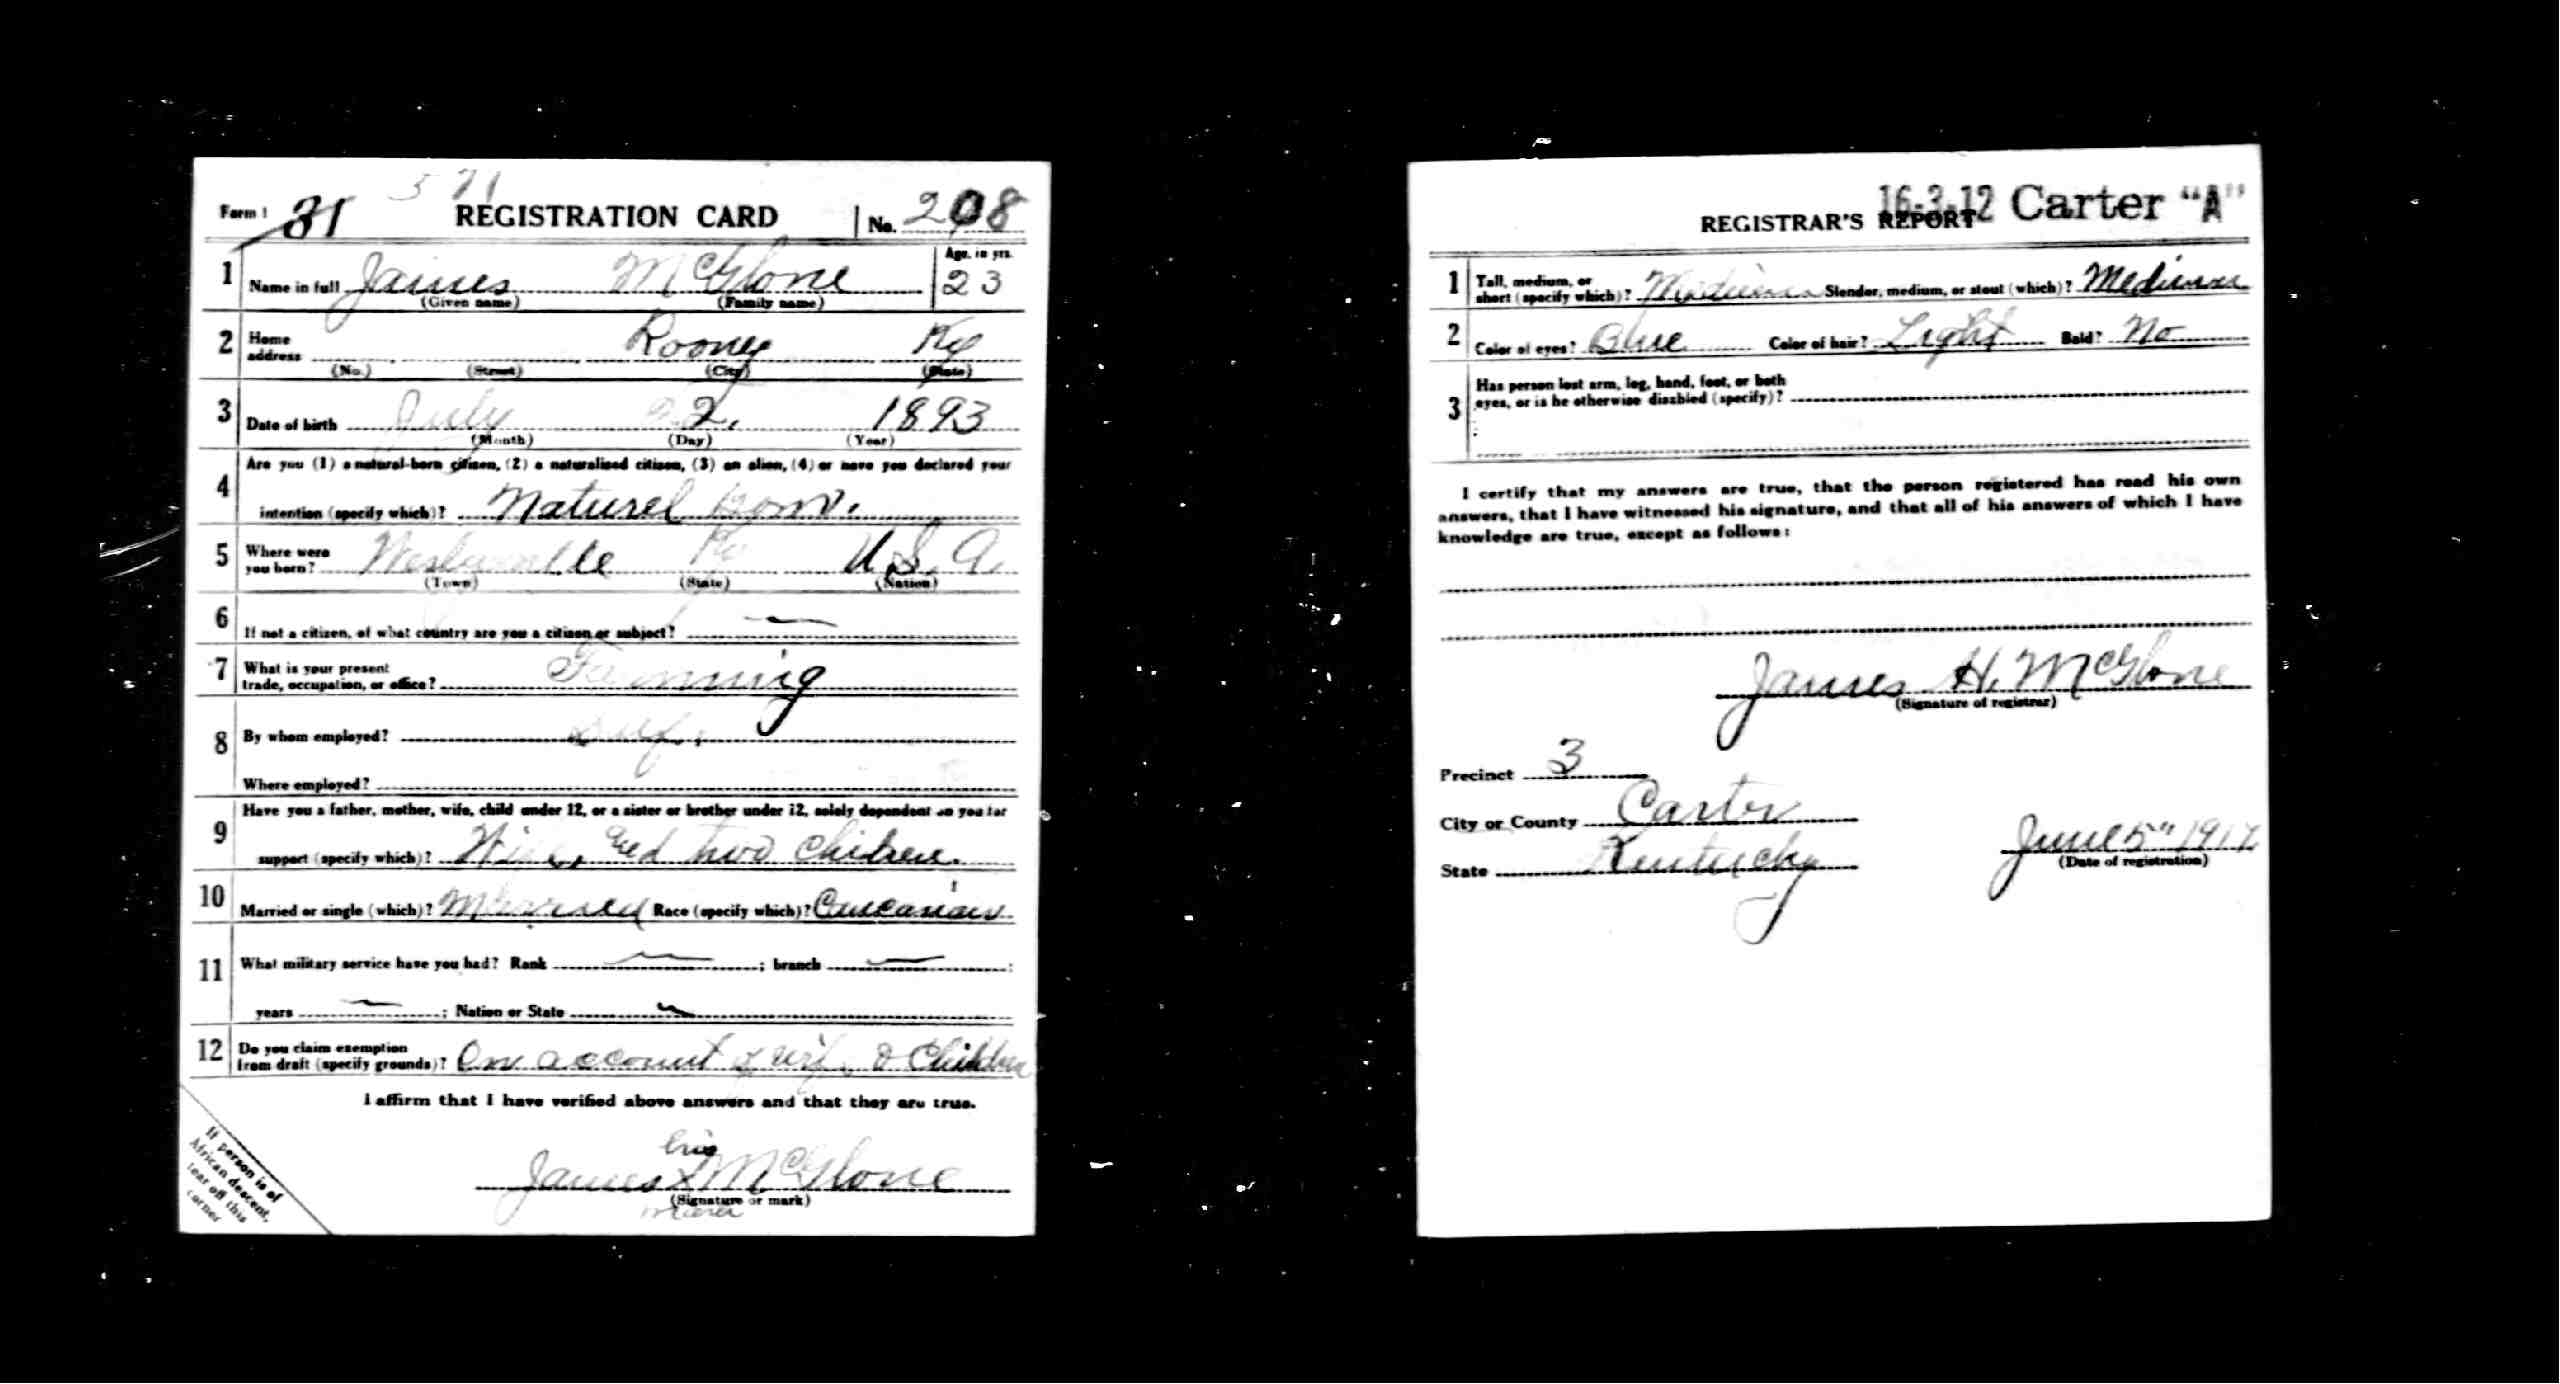 571
Form 1 31 REGISTRATION CARD No. 208
1 Name in full James McGlone Age, in yrs. 23
(Given name) (Family name)
2 Home address Rooney Ky
(No.) (Street) (City) (State)
3 Date of birth July 22, 1893
(Month) (Day) (Year)
4 Are you (1) a natural-born citizen, (2) a naturalized citizen, (3) an alien, (4) or have you declared your
intention (specify which)? Naturel born.
5 Where were you born? Ky U.S.A.
(Town) (State) (Nation)
6 If not a citizen, of what country are you a citizen or subject? —
7 What is your present
trade, occupation, or office? Farming
8 By whom employed? Self.
Where employed?
9 Have you a father, mother, wife, child under 12, or a sister or brother under 12, solely dependent on you for
support (specify which)? Wife, and two children.
10 Married or single (which)? Race (specify which)? Caucasian
11 What military service have you had? Rank — ; branch — ;
years — ; Nation or State —
12 Do you claim exemption
from draft (specify grounds)? On account of wife & Children
I affirm that I have verified above answers and that they are true.
his
James X McGlone
(Signature or mark)
If person is of
African descent,
tear off this
corner
16-3-12 Carter "A"
REGISTRAR'S REPORT
1 Tall, medium, or
short (specify which)? Medium Slender, medium, or stout (which)? Medium
2 Color of eyes? Blue Color of hair? Light Bald? No
3 Has person lost arm, leg, hand, foot, or both
eyes, or is he otherwise disabled (specify)?
I certify that my answers are true, that the person registered has read his own
answers, that I have witnessed his signature, and that all of his answers of which I have
knowledge are true, except as follows:
James H. McGlone
(Signature of registrar)
Precinct 3
City or County Carter
State Kentucky
June 5" 1917
(Date of registration)